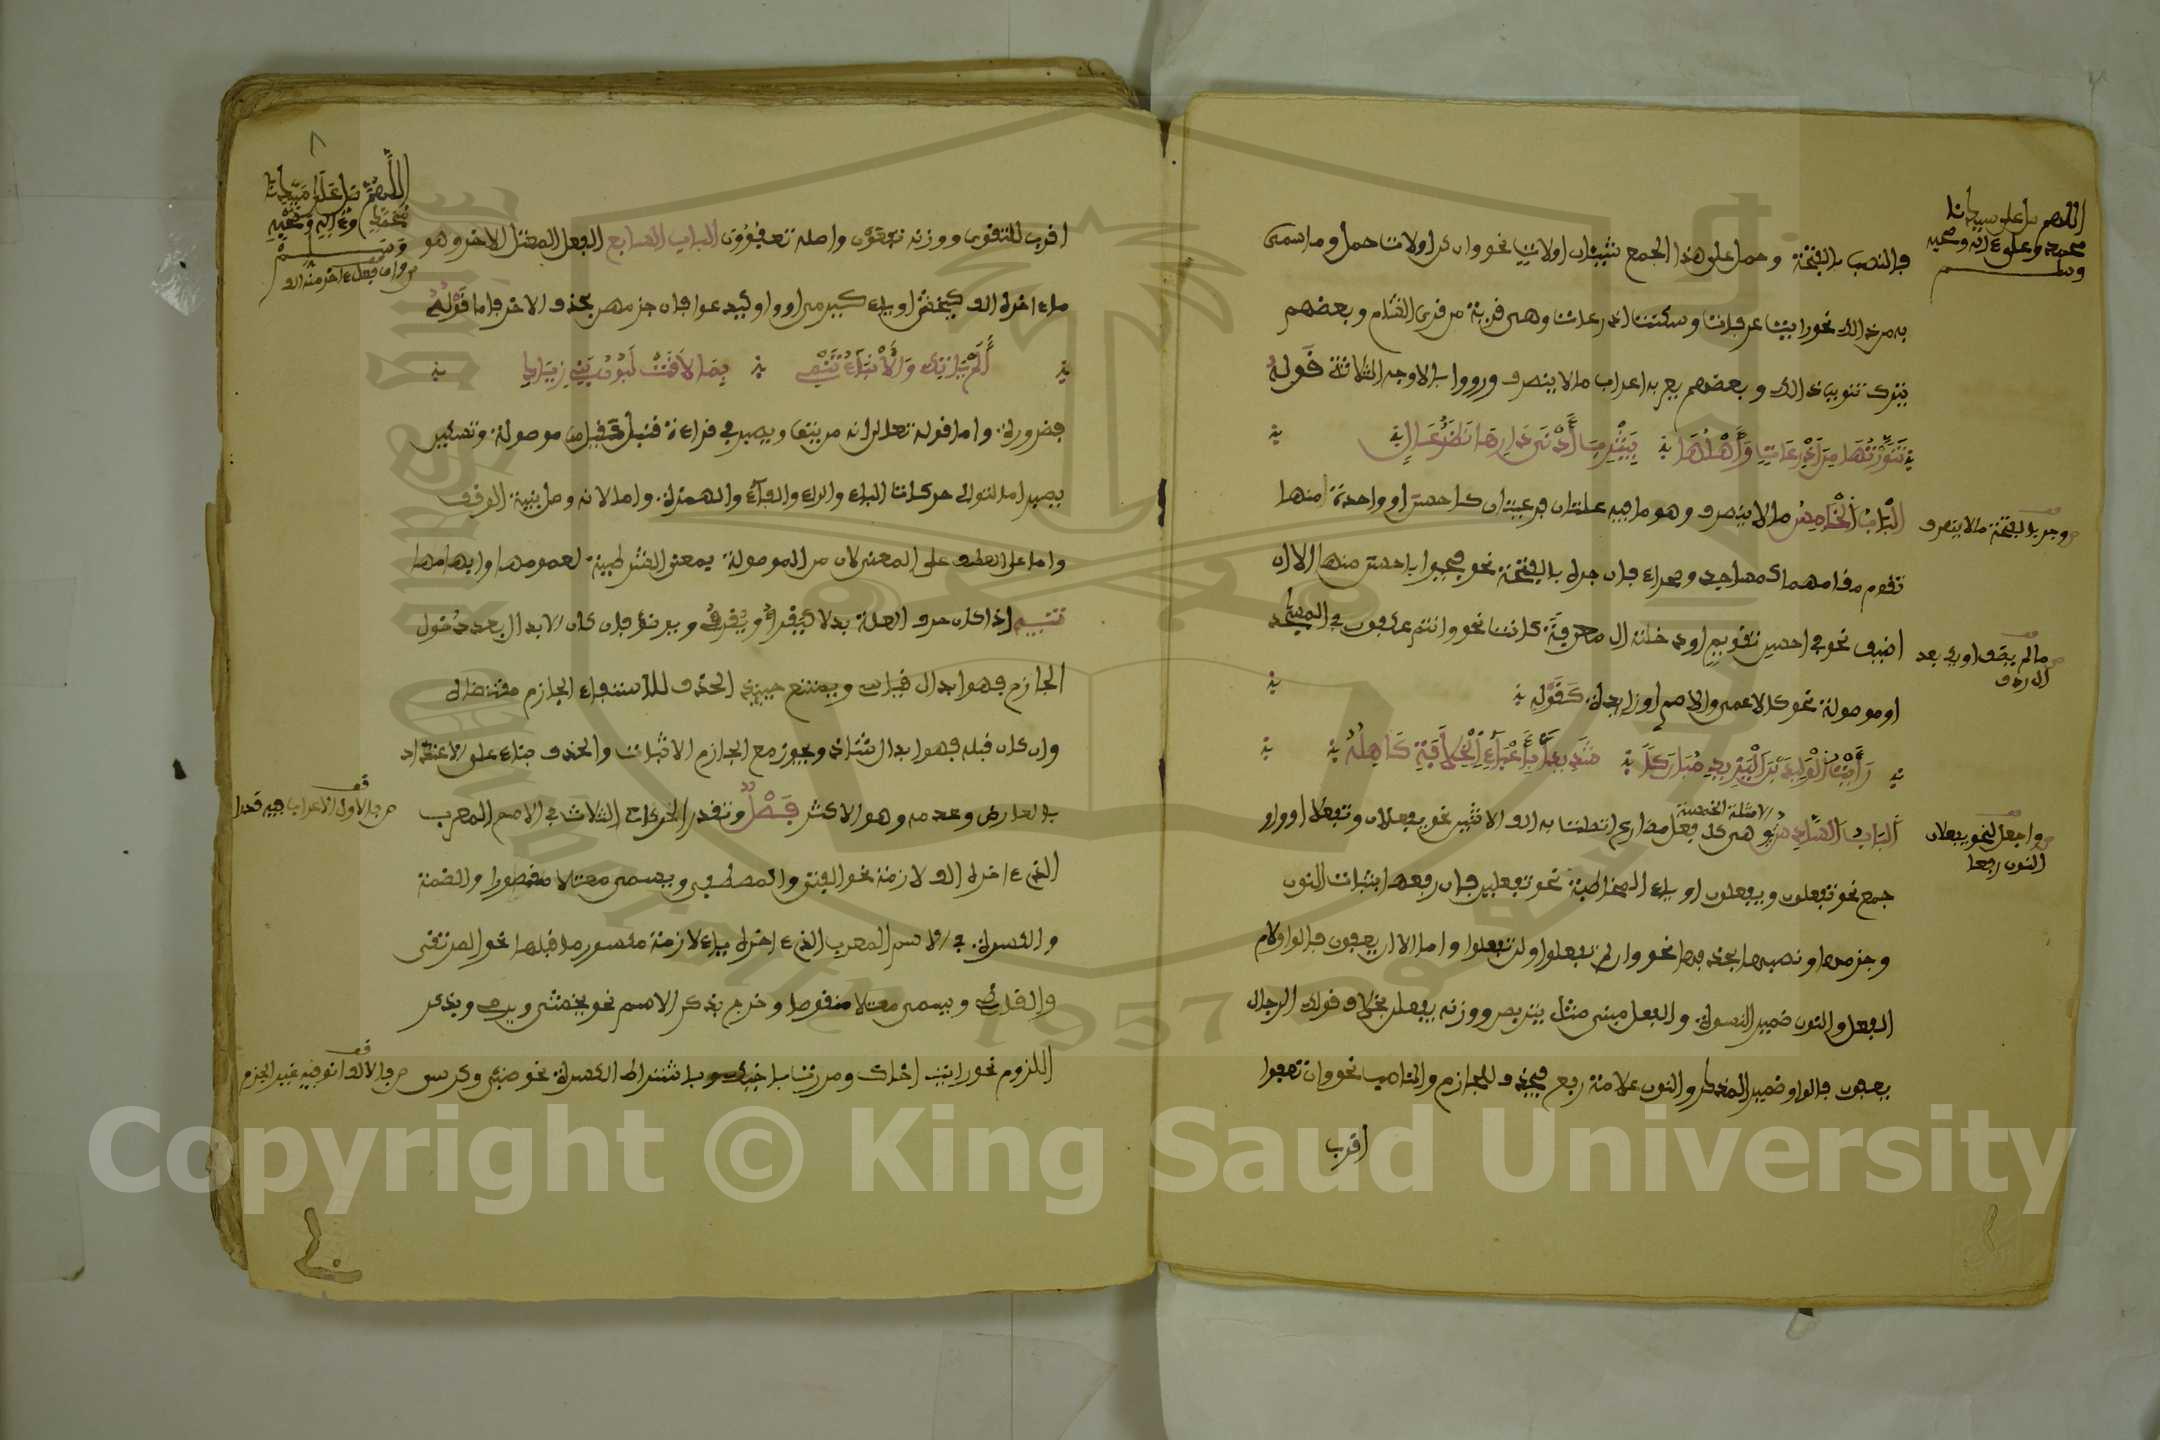 اللهم صل على سيدنا
محمد وعلى ءاله وصحبه
وسلم
والنصب بالفتحة وحمل على هذا الجمع شيئان اولات نحو وان كن اولات حمل وما سمى
به من ذالك نحو رايت عرفات وسكنت اذرعات وهى قرية من قرى الشام وبعضهم
يترك تنوين ذالك وبعضهم يعربه اعراب ما لا ينصرف ورووا بالاوجه الثلاثة قوله
تَنَوَّرْتُهَا مِنَ اَذْرِعَاتٍ وَأَهْلُهَا بِيَثْرِبَ أَدْنَى دَارِهَا نَظَرٌ عَالِ
الباب الخامس ما لا ينصرف وهو ما فيه علتان فرعيتان كاحسن او واحدة منها
وجر بالفتحة ما لا ينصرف
تقوم مقامهما كمساجد وصحراء فان جره بالفتحة نحو فحيوا باحسن منها الا ان
اضيف نحو فى احسن تقويم او دخلته ال معرفة كانت نحو وانتم عاكفون فى المساجد
ما لم يضف او يك بعد
ال ردف
او موصولة نحو كالاعمى والاصم او زايدة كقوله
رَأَيْتُ الْوَلِيدَ بْنَ الْيَزِيدِ مُبَارَكًا شَدِيدًا بِأَعْبَاءِ الْخِلَافَةِ كَاهِلُهُ
الامثلة الخمسة
الباب السادس وهى كل فعل مضارع اتصلت به الف الاثنين نحو يفعلان وتفعلان او واو
واجعل لنحو يفعلان
النون رفعا
جمع نحو تفعلون ويفعلون او ياء المخاطبة نحو تفعلين فان رفعها بثبات النون
وجزمها ونصبها بحذفها نحو وان لم تفعلوا ولن تفعلوا واما الا ان يعفون فالواو لام
الفعل والنون ضمير النسوة والفعل مبنى مثل يتربصن ووزنه يفعلن بخلاف قولك الرجال
يعفون فالواو ضمير المذكر والنون علامة رفع فيحذف للجازم والناصب نحو وان تعفوا
اقرب
٨
اللهم صل على سيدنا
محمد وعلى ءاله وصحبه
وسلم
واى فعل ءاخر منه الف
اقرب للتقوى ووزنه تعفوا واصله تعفووا الباب السابع الفعل المعتل الاخر وهو
ما ءاخره الف كيخشى او ياء كيرمى او واو كيدعوا فان جزمهن بحذف الاخر فاما قوله
أَلَمْ يَأْتِيكَ وَالْأَنْبَاءُ تَنْمِي بِمَا لَاقَتْ لَبُونُ بَنِي زِيَادِ
فضرورة واما قوله تعالى انه من يتقى ويصبر فى قراءة قنبل فقيل من موصولة وتسكين
يصبر اما لتوالى حركات الباء والراء والفاء والهمزة واما لانه وصل بنية الوقف
واما على العطف على المعنى لان من الموصولة بمعنى الشرطية لعمومها وابهامها
تنبيه اذا كان حرف العلة بدلا كيقرا ويقرئ ويوضؤ فان كان الابدال بعد دخول
الجازم فهو ابدال قياسى ويمتنع حينئذ الحذف لاستيفاء الجازم مقتضاه
وان كان قبله فهو ابدال شاذ ويجوز مع الجازم الاثبات والحذف بناء على الاعتداد
بالعارض وعدمه وهو الاكثر فصل وتقدر الحركات الثلاث فى الاسم المعرب
فالاول الاعراب فيه قدرا
الذى ءاخره الف لازمة نحو الفتى والمصطفى ويسمى معتلا مقصورا والضمة
والكسرة فى الاسم المعرب الذى ءاخره ياء لازمة مكسور ما قبلها نحو المرتقى
والقاضى ويسمى معتلا منقوصا وخرج بذكر الاسم نحو يخشى ويرمى وبذكر
اللزوم نحو رايت اخاك ومررت باخيك وباشتراط الكسرة نحو ظبى وكرسى
فالالف انو فيه غير الجزم
Copyright © King Saud University
1957